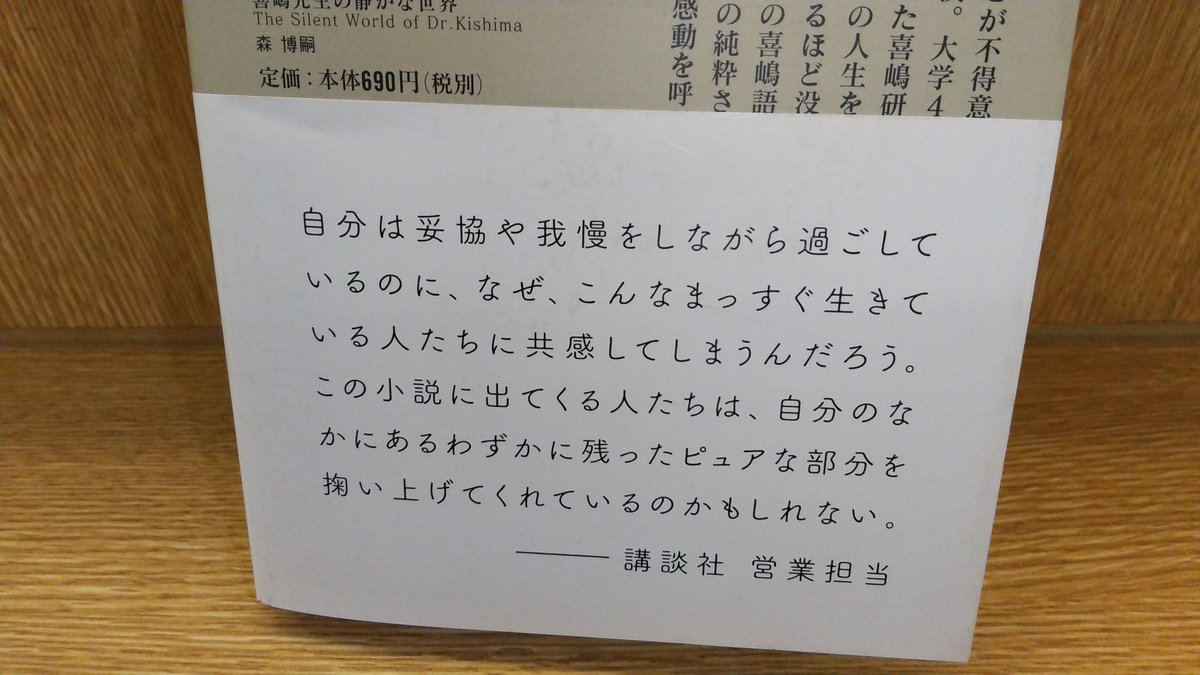 喜嶋先生の静かな世界
The Silent World of Dr.Kishima
森 博嗣
定価：本体690円(税別)
とが不得意
。大学4
た喜嶋研
の人生を
るほど没
の喜嶋語
の純粋さ
感動を呼
自分は妥協や我慢をしながら過ごして
いるのに、なぜ、こんなまっすぐ生きて
いる人たちに共感してしまうんだろう。
この小説に出てくる人たちは、自分のな
かにあるわずかに残ったピュアな部分を
掬い上げてくれているのかもしれない。
――― 講談社 営業担当